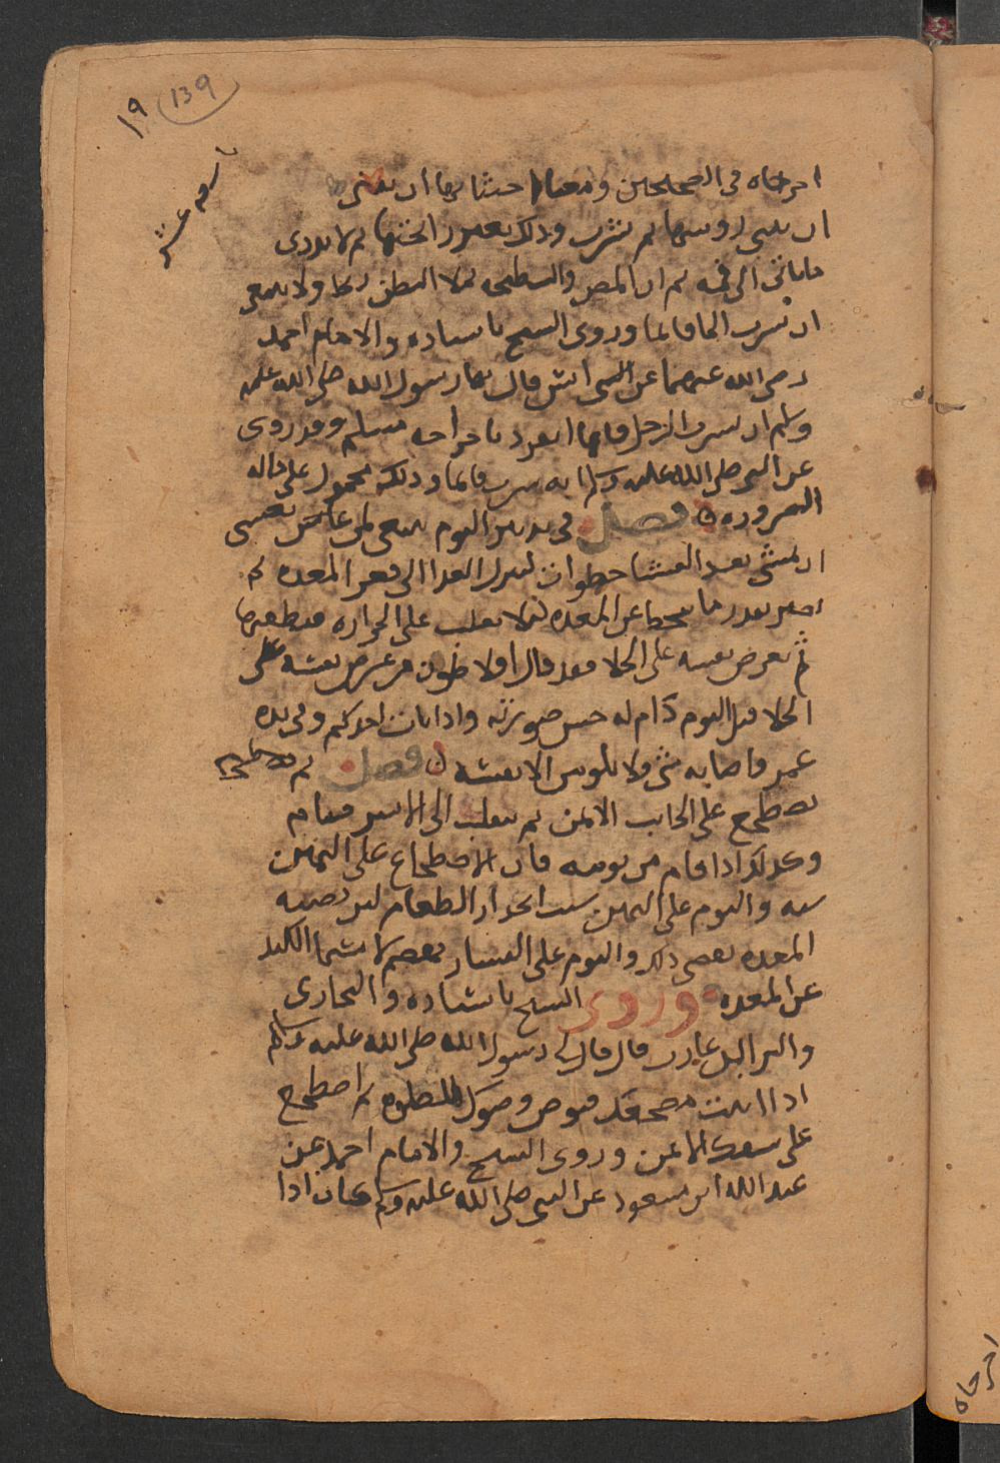 ١٩ 139
تاسع عشر
اخرجاه في الصحيحين ومعنا اختناثها ان يعني
ان يثني روسها ثم يشرب وذلك يغير رائحتها ثم لا يدري
ما ياتي الى فمه ثم ان المص والبطيخه يملا البطن ريحا ولا ينبغي
ان يشرب الما قائما وروى الشيخ باسناده والامام احمد
رضي الله عنهما عن انس قال نها رسول الله صلى الله عليه
وسلم ان يشرب الرجل قائما انفرد باخراجه مسلم وقد روى
عن النبي صلى الله عليه وسلم انه شرب قائما وذلك محمول على حاله
الضروره فصل في تدبير النوم ينبغي لمن
ان يمشي بعد العشا خطوات لينزل الغدا الى قعر المعده ثم
يصبر بقدر ما ينحط عن المعده لئلا يغلب على الحراره فيطفيها
ثم يعرض نفسه على الخلا فقد قال افلاطون من عرض نفسه على
الخلا قبل النوم دام له حسن صورته واذا بات احدكم وفي يده
غمر فاصابه شي فلا يلومن الا نفسه فصل ثم يضطجع
يضطجع على الجانب الايمن ثم ينقلب الى الايسر فينام
وكذلك اذا قام من نومه فان الاضطجاع على اليمين
سنه والنوم على اليمين سبب انحدار الطعام لين قصبه
المعده يقتضي ذلك والنوم على اليسار يهضم لاشتمال الكبد
على المعده وروى الشيخ باسناده والبخاري
والبرا بن عازب قال قال لي رسول الله صلى الله عليه وسلم
اذا اتيت مضجعك فتوض وضوك للصلوه ثم اضطجع
على شقك الايمن وروى الشيخ والامام احمد عن
عبد الله ابن مسعود عن النبي صلى الله عليه وسلم كان اذا
اخرجاه